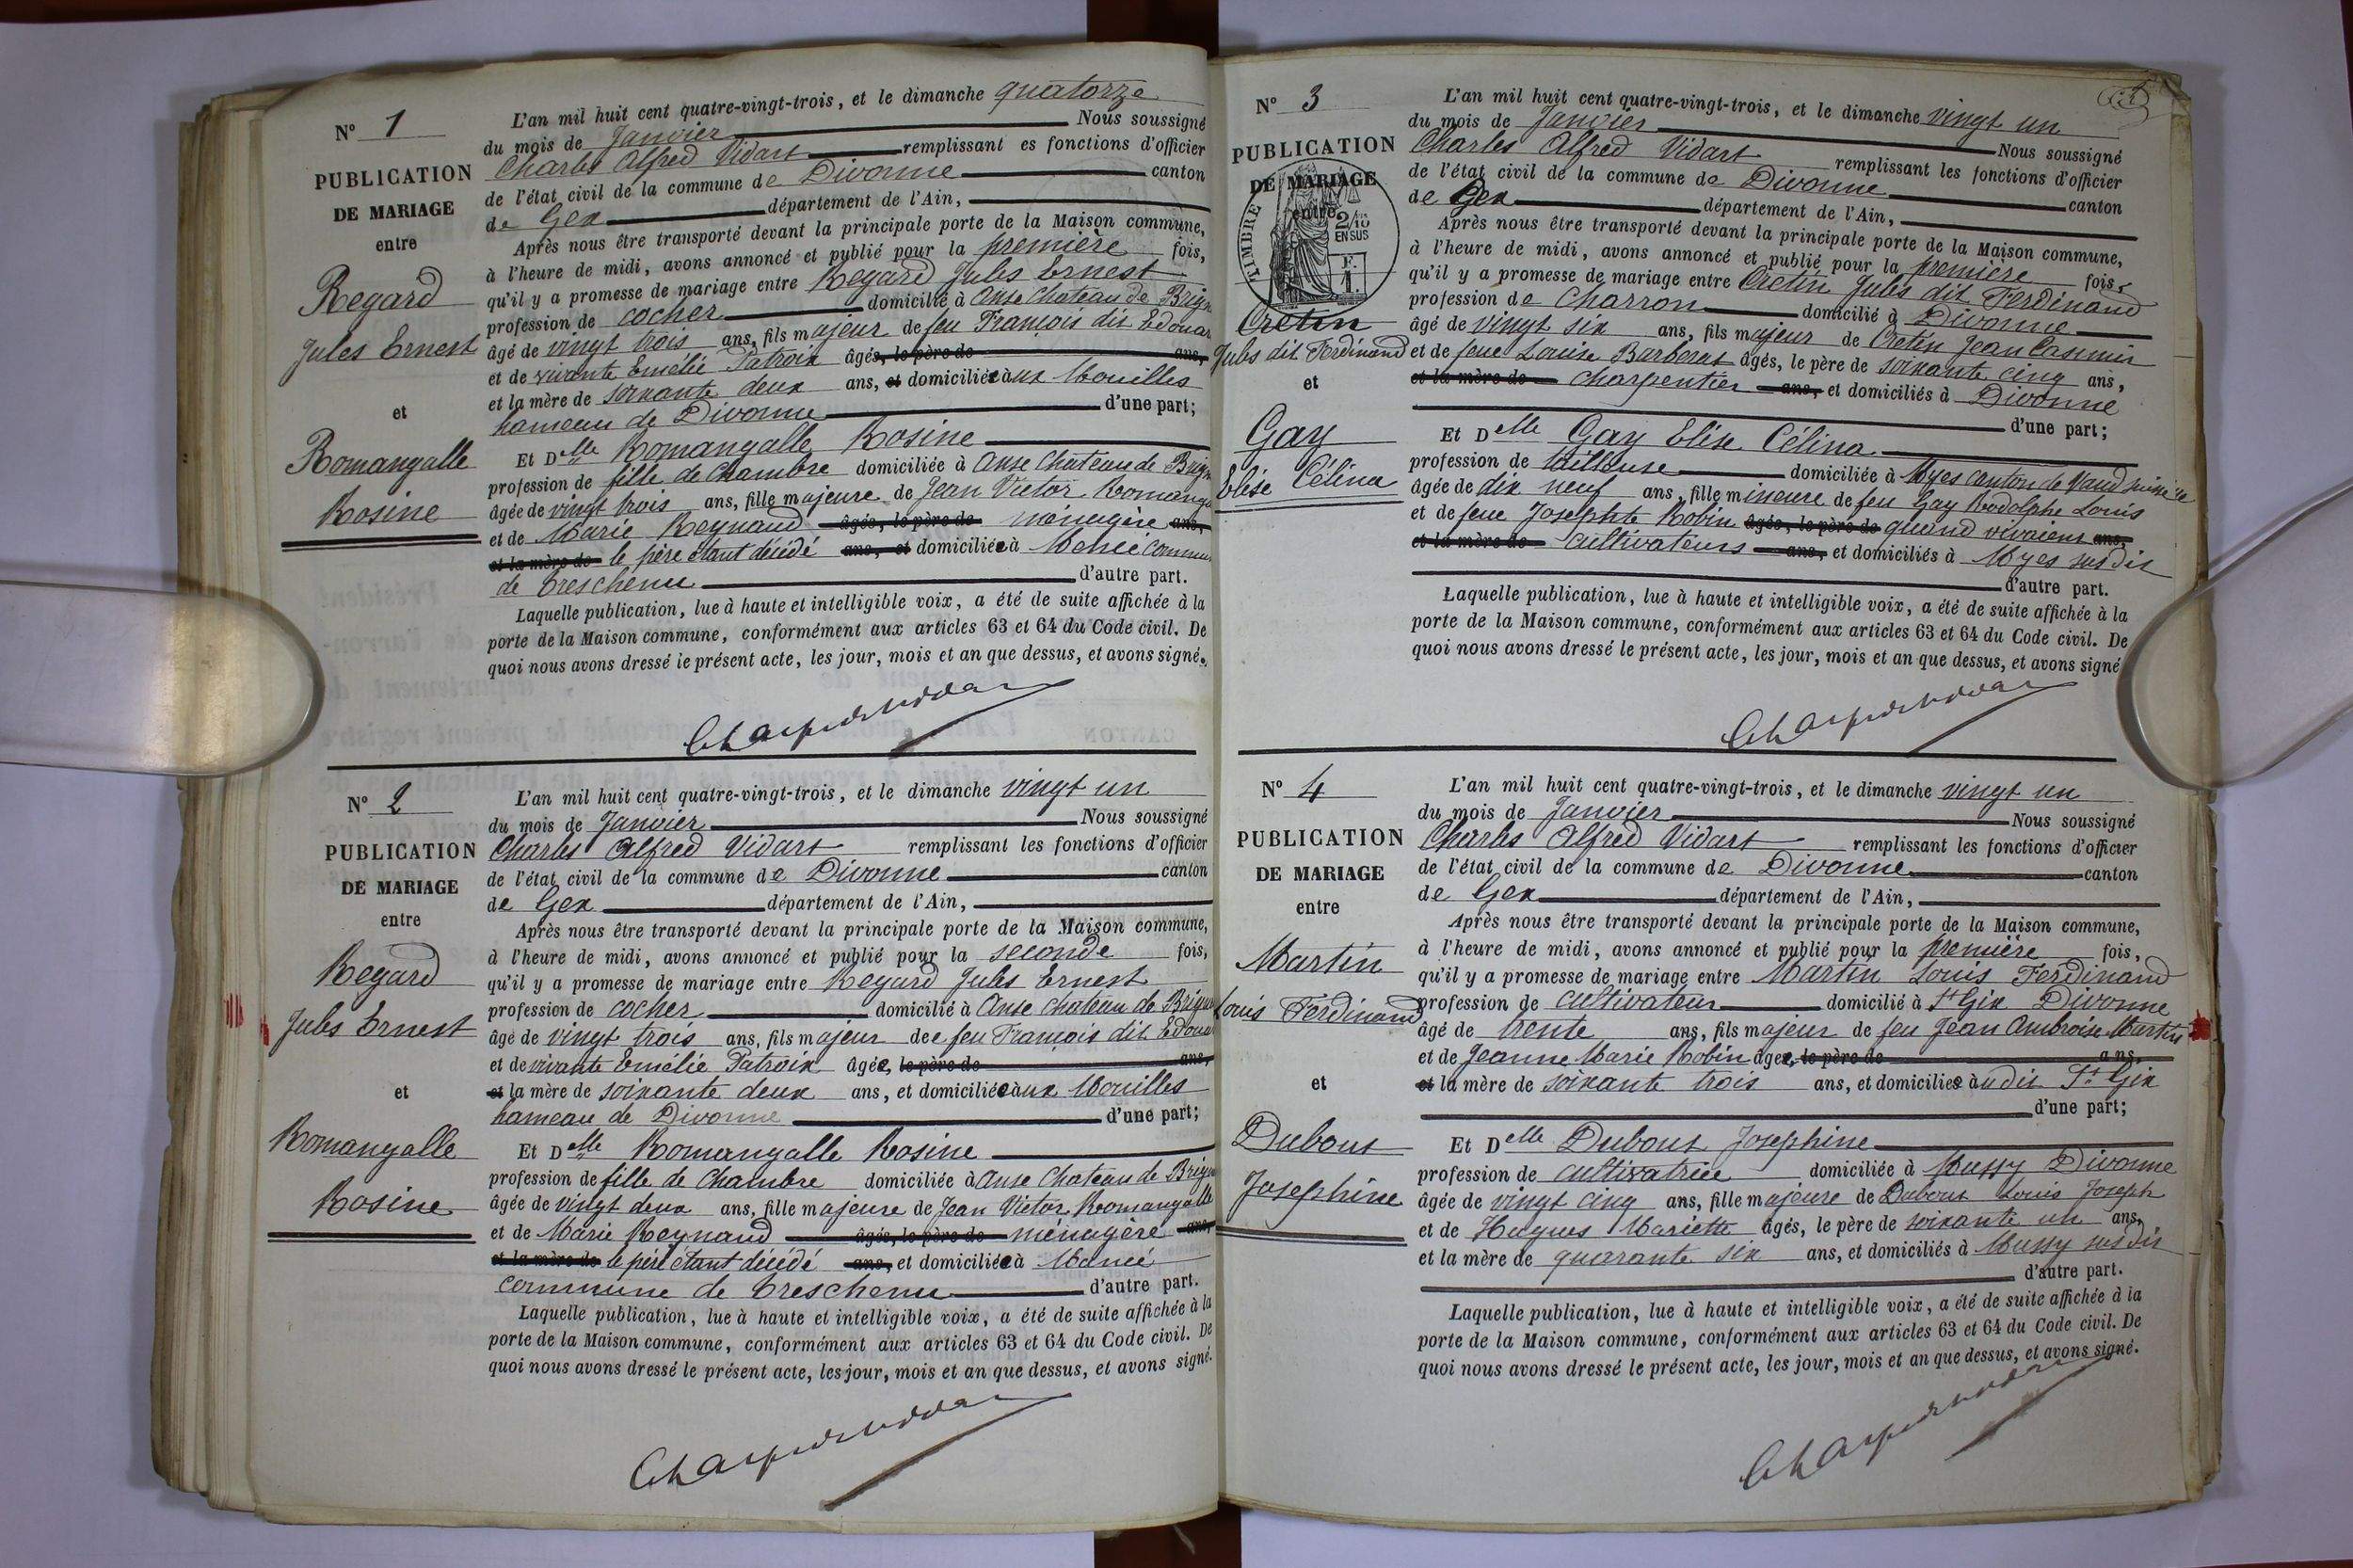 N° 1
PUBLICATION
DE MARIAGE
entre
Regard
Jules Ernest
et
Romangalle
Rosine
L'an mil huit cent quatre-vingt-trois, et le dimanche quatorze
du mois de Janvier Nous soussigné
Charles Alfred Vidart remplissant es fonctions d'officier
de l'état civil de la commune de Divonne canton
de Gex département de l'Ain,
Après nous être transporté devant la principale porte de la Maison commune,
à l'heure de midi, avons annoncé et publié pour la première fois,
qu'il y a promesse de mariage entre Regard Jules Ernest
profession de cocher domicilié à Anse Chateau de
âgé de vingt trois ans, fils majeur de feu François dit
et de vivante Emélie Patroix âgés, le père de ans,
et la mère de soixante deux ans, et domiciliée aux Mouilles
hameau de Divonne d'une part;
Et Delle Romangalle Rosine
profession de fille de Chambre domiciliée à Anse Chateau de
âgée de vingt trois ans, fille majeure de Jean Victor
et de Marie Reynaud âgés, le père de ménagère ans,
et la mère de le père étant décédé ans, et domiciliée à
de Treschenu d'autre part.
Laquelle publication, lue à haute et intelligible voix, a été de suite affichée à la
porte de la Maison commune, conformément aux articles 63 et 64 du Code civil. De
quoi nous avons dressé le présent acte, les jour, mois et an que dessus, et avons signé.
N° 2
PUBLICATION
DE MARIAGE
entre
Regard
Jules Ernest
et
Romangalle
Rosine
L'an mil huit cent quatre-vingt-trois, et le dimanche vingt un
du mois de Janvier Nous soussigné
Charles Alfred Vidart remplissant les fonctions d'officier
de l'état civil de la commune de Divonne canton
de Gex département de l'Ain,
Après nous être transporté devant la principale porte de la Maison commune,
à l'heure de midi, avons annoncé et publié pour la seconde fois,
qu'il y a promesse de mariage entre Regard Jules Ernest
profession de cocher domicilié à Anse chateau de
âgé de vingt trois ans, fils majeur de feu François dit
et de vivante Emélie Patroix âgée, le père de ans,
et la mère de soixante deux ans, et domiciliée aux Mouilles
hameau de Divonne d'une part;
Et Delle Romangalle Rosine
profession de fille de Chambre domiciliée à Anse Chateau de
âgée de vingt deux ans, fille majeure de Jean Victor Romangalle
et de Marie Reynaud âgés, le père de ménagère ans,
et la mère de le père étant décédé ans, et domiciliée à
commune de Treschenu d'autre part.
Laquelle publication, lue à haute et intelligible voix, a été de suite affichée à la
porte de la Maison commune, conformément aux articles 63 et 64 du Code civil. De
quoi nous avons dressé le présent acte, les jour, mois et an que dessus, et avons signé.
N° 3
PUBLICATION
DE MARIAGE
entre
TIMBRE
2/10
EN SUS
F.
1.
Cretin
Jules dit Ferdinand
et
Gay
Elise Célina
L'an mil huit cent quatre-vingt-trois, et le dimanche vingt un
du mois de Janvier Nous soussigné
Charles Alfred Vidart remplissant les fonctions d'officier
de l'état civil de la commune de Divonne canton
de Gex département de l'Ain,
Après nous être transporté devant la principale porte de la Maison commune,
à l'heure de midi, avons annoncé et publié pour la première fois,
qu'il y a promesse de mariage entre Cretin Jules dit Ferdinand
profession de Charron domicilié à Divonne
âgé de vingt six ans, fils majeur de Cretin Jean Casimir
et de feue Louise Barberat âgés, le père de soixante cinq ans,
et la mère de charpentier ans, et domiciliés à Divonne
d'une part;
Et Delle Gay Elise Célina
profession de tailleuse domiciliée à Myes canton de Vaud
âgée de dix neuf ans, fille mineure de feu Gay Rodolphe Louis
et de feue Josephte Robin âgés, le père de quand vivaient ans,
et la mère de cultivateurs ans, et domiciliés à Myes susdit
d'autre part.
Laquelle publication, lue à haute et intelligible voix, a été de suite affichée à la
porte de la Maison commune, conformément aux articles 63 et 64 du Code civil. De
quoi nous avons dressé le présent acte, les jour, mois et an que dessus, et avons signé
N° 4
PUBLICATION
DE MARIAGE
entre
Martin
Louis Ferdinand
et
Dubout
Josephine
L'an mil huit cent quatre-vingt-trois, et le dimanche vingt un
du mois de Janvier Nous soussigné
Charles Alfred Vidart remplissant les fonctions d'officier
de l'état civil de la commune de Divonne canton
de Gex département de l'Ain,
Après nous être transporté devant la principale porte de la Maison commune,
à l'heure de midi, avons annoncé et publié pour la première fois,
qu'il y a promesse de mariage entre Martin Louis Ferdinand
profession de cultivateur domicilié à St Gix Divonne
âgé de trente ans, fils majeur de feu Jean Ambroise Martin
et de Jeanne Marie Robin âgée, le père de ans,
et la mère de soixante trois ans, et domiciliée audit St Gix
d'une part;
Et Delle Dubout Josephine
profession de cultivatrice domiciliée à Mussy Divonne
âgée de vingt cinq ans, fille majeure de Dubout Louis Joseph
et de Hugues Mariette âgés, le père de soixante un ans,
et la mère de quarante six ans, et domiciliés à Mussy susdit
d'autre part.
Laquelle publication, lue à haute et intelligible voix, a été de suite affichée à la
porte de la Maison commune, conformément aux articles 63 et 64 du Code civil. De
quoi nous avons dressé le présent acte, les jour, mois et an que dessus, et avons signé.